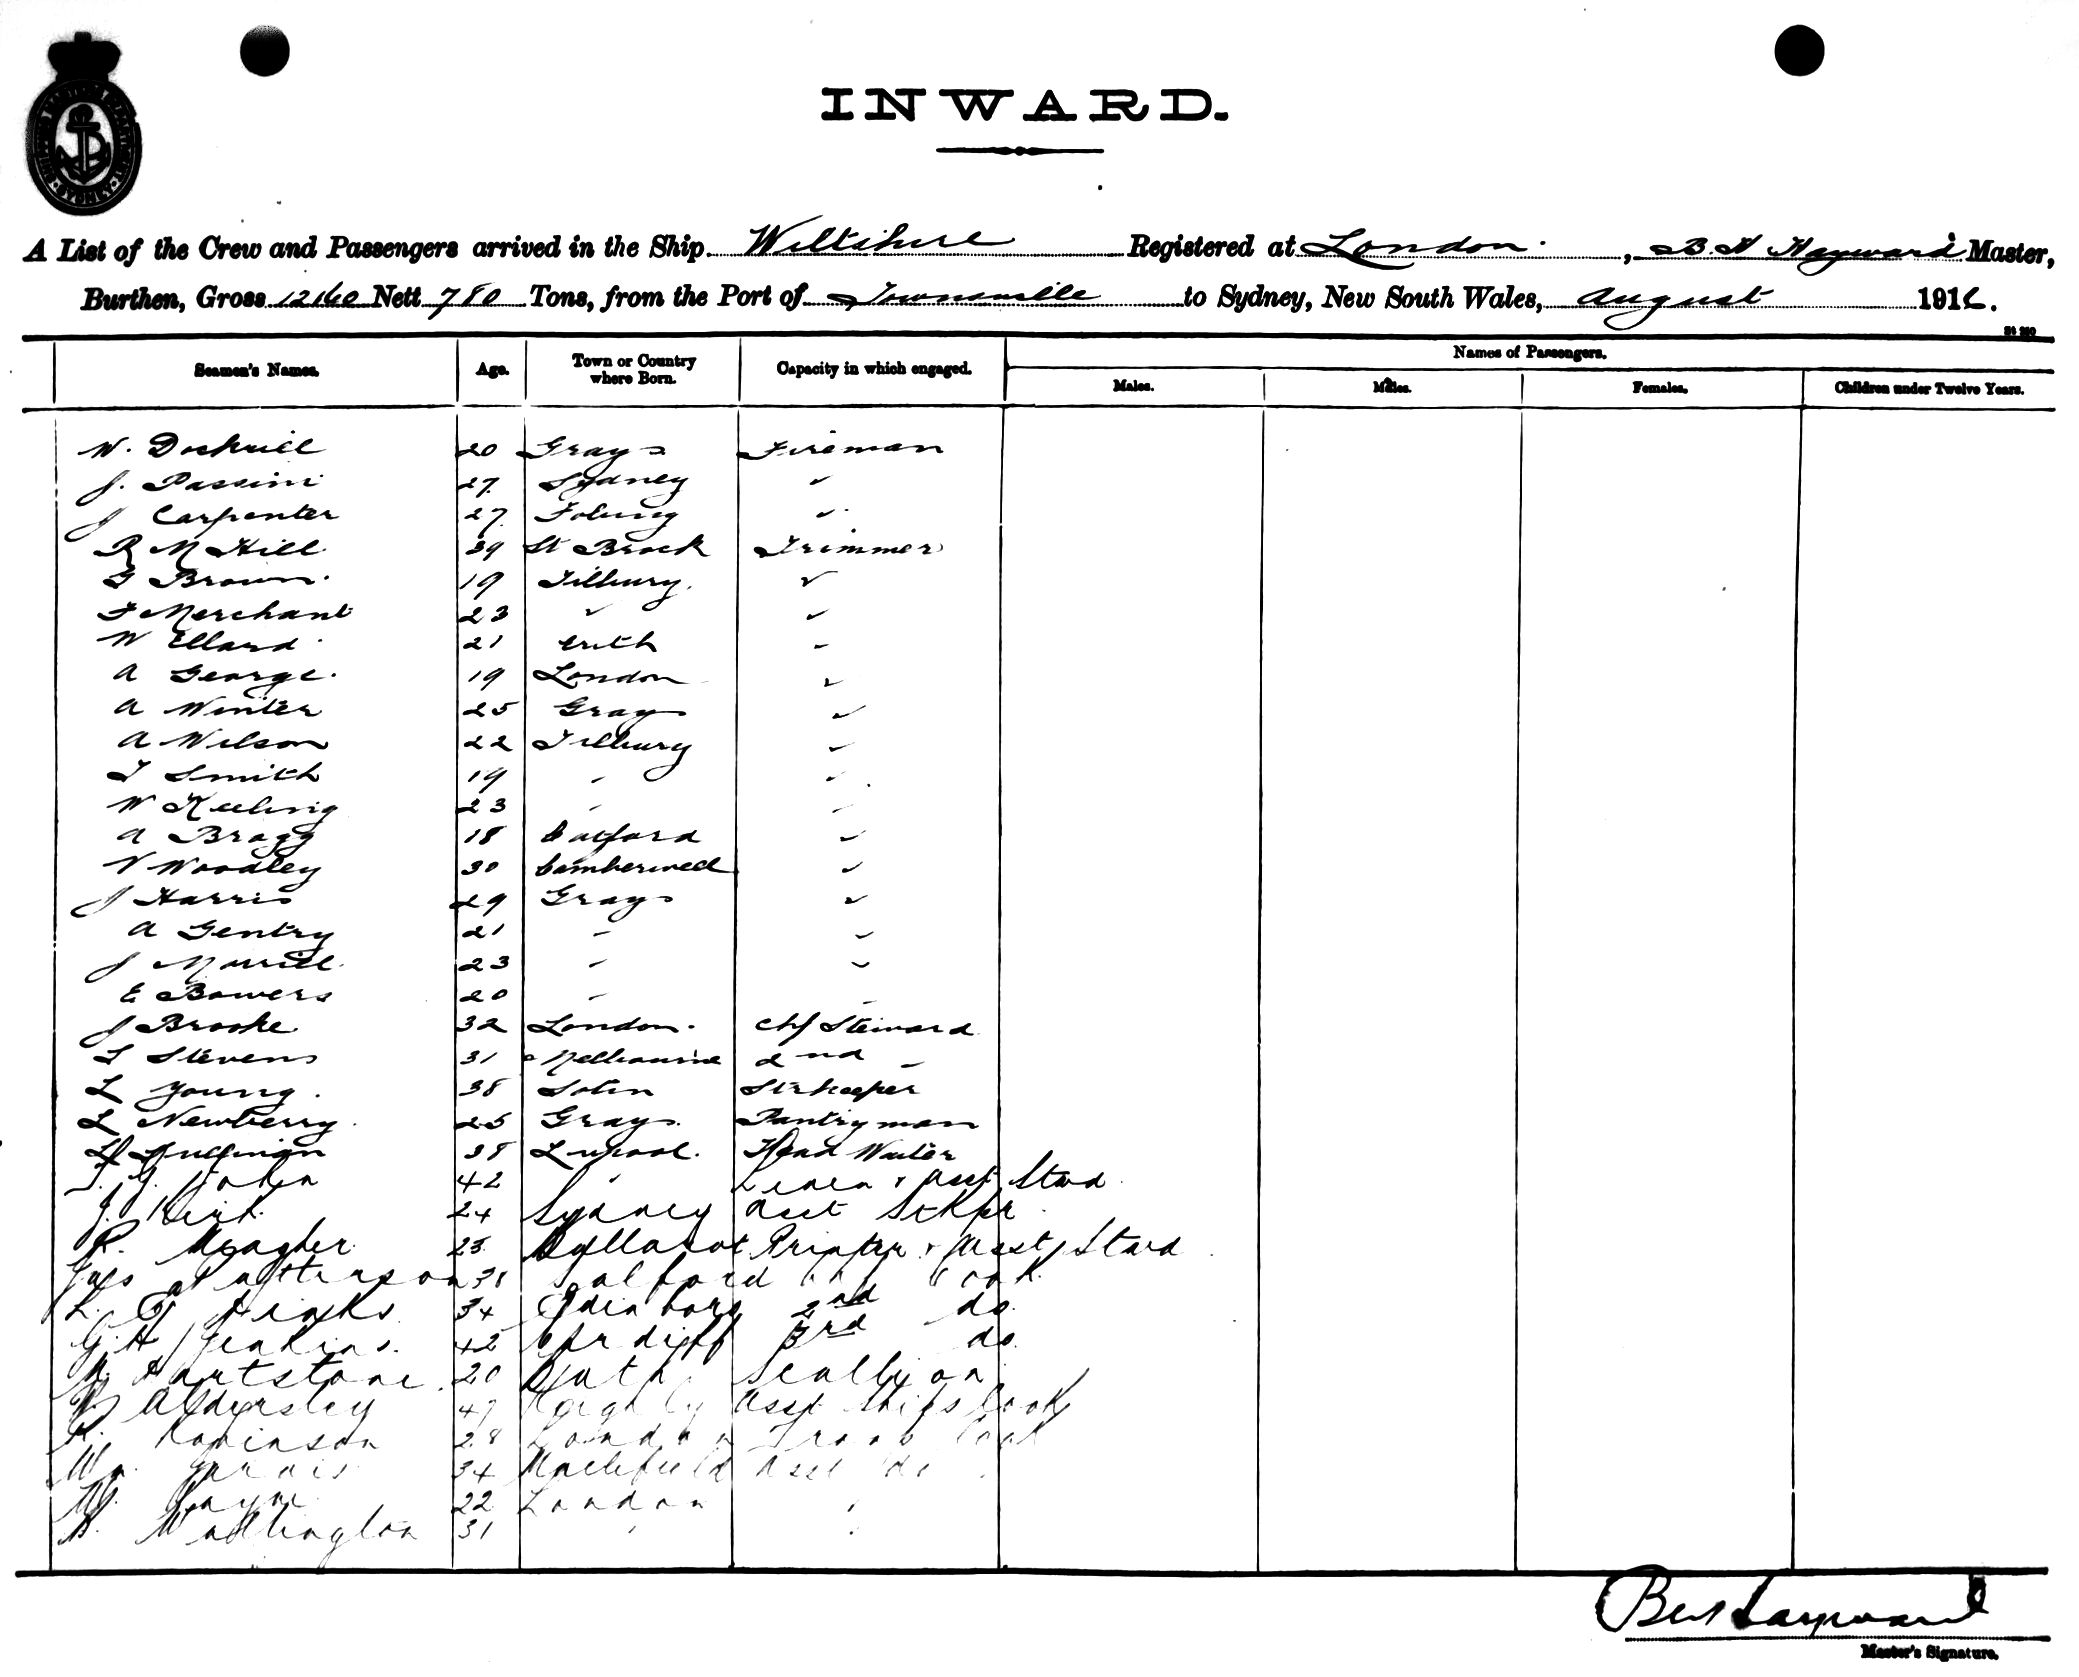 INWARD.
A List of the Crew and Passengers arrived in the Ship Wiltshire Registered at London. , B. H Hayward Master,
Burthen, Gross 12160 Nett 780 Tons, from the Port of Townsville to Sydney, New South Wales, August 1916.
Seamen's Names. Age. Town or Country where Born. Capacity in which engaged. Names of Passengers.
Males. Males. Females. Children under Twelve Years.
W. Dockrill 20 Grays Fireman
J. Passini 27 Sydney "
J Carpenter 27 Fobing "
R M Hill 39 St Brock Trimmer
G Brown. 19 Tilbury. "
F Merchant 23 " "
W Ellard 21 Erith "
A George. 19 London "
A Winter 25 Grays "
A Wilson 22 Tilbury "
T Smith 19 " "
W Keeling 23 " "
A Bragg 18 Catford "
V Woodley 30 Camberwell "
J Harris 29 Grays "
A Gentry 21 " "
J 23 " "
E Bowers 20 " "
J Brooke 32 London. Chf Steward
S Stevens 31 Melbourne 2nd "
L Young. 38 Strkeeper
L Newberry. 25 Grays. Pantryman
38 L'pool. Head Waiter
42 " Linen & Asst Stwd
J. Kirk 24 Sydney Asst StKpr
R. Meagher 25 Ballarat Printer & Asst Stwd
Jas Patterson 38 Salford Chf Cook
L. G Hinks 34 Edinboro 2nd do
G. H Jenkins. 42 Cardiff 3rd do
M. Hartstone. 20 Bath Scullion
Aldersley 47 Keighley Asst Ships Cook
R. Robinson 28 London Troop Cook
Wm. Jarvis 34 Asst do
22 London "
H. Wadlington 31 " "
Master's Signature.